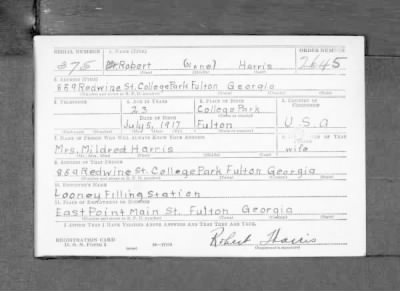 SERIAL NUMBER 1. NAME (Print) ORDER NUMBER
375 Robert (none) Harris 2645
(First) (Middle) (Last)
2. ADDRESS (Print)
869 Redwine St. College Park Fulton Georgia
3. TELEPHONE 4. AGE IN YEARS 5. PLACE OF BIRTH 6. COUNTRY OF CITIZENSHIP
23 College Park
DATE OF BIRTH
July 5, 1917 Fulton U.S.A
7. NAME OF PERSON WHO WILL ALWAYS KNOW YOUR ADDRESS
Mrs. Mildred Harris wife
(Mr., Mrs., Miss) (First) (Middle) (Last)
9. ADDRESS OF THAT PERSON
869 Redwine St. College Park Fulton Georgia
10. EMPLOYER'S NAME
Looney Filling Station
11. PLACE OF EMPLOYMENT OR BUSINESS
East Point Main St. Fulton Georgia
I AFFIRM THAT I HAVE VERIFIED ABOVE ANSWERS AND THAT THEY ARE TRUE.
REGISTRATION CARD
D. S. S. Form 1
Robert Harris
(Registrant's signature)